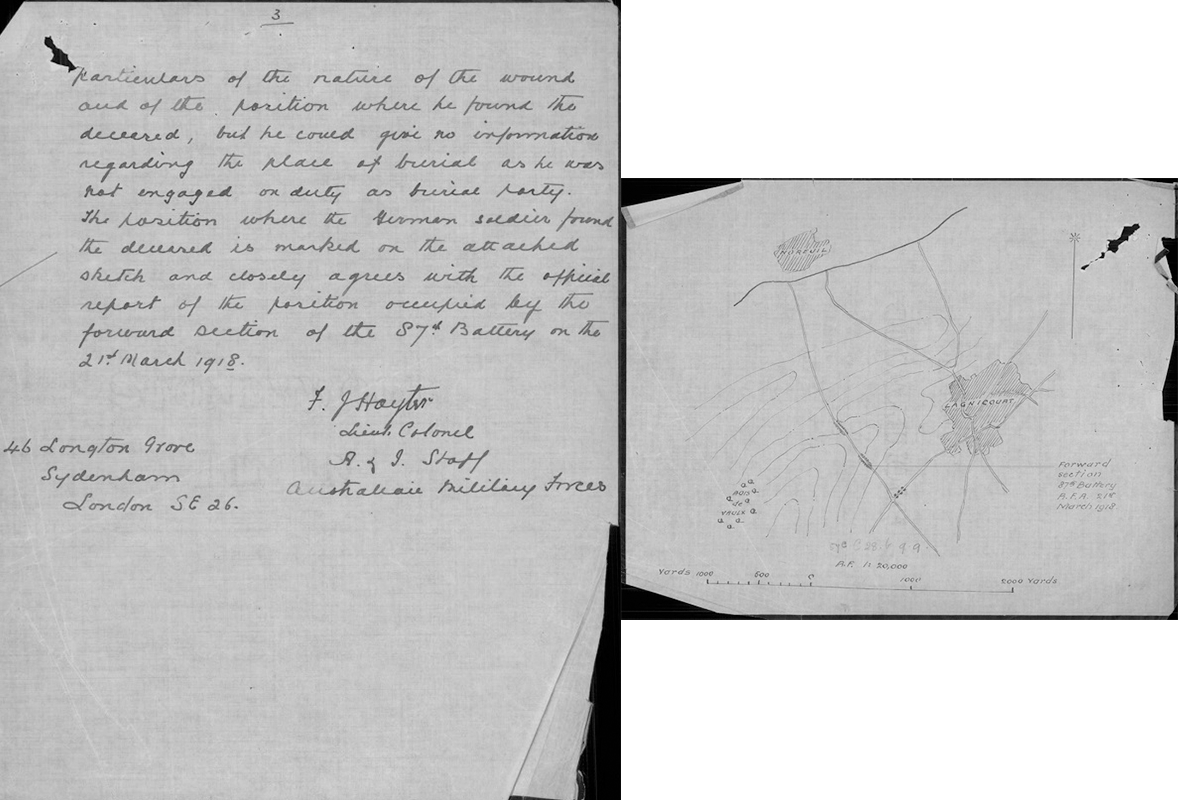 3
particulars of the nature of the wound
and of the position where he found the
deceased, but he could give no information
regarding the place of burial as he was
not engaged on duty as burial party.
The position where the German soldier found
the deceased is marked on the attached
sketch and closely agrees with the official
report of the position occupied by the
forward section of the 87th Battery on the
21st March 1918.
F. J Hayter
Lieut Colonel
A. & I. Staff
Australian Military Forces
46 Longton Grove
Sydenham
London SE 26.
NOREUIL
LAGNICOURT
Forward
section
87th Battery
A.F.A. 21st
March 1918.
BOIS
de
VAULX
R.F. 1: 20,000
Yards 1000 500 0 1000 2000 Yards